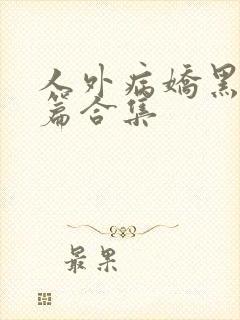 人外病嬌黑
篇合集
最果